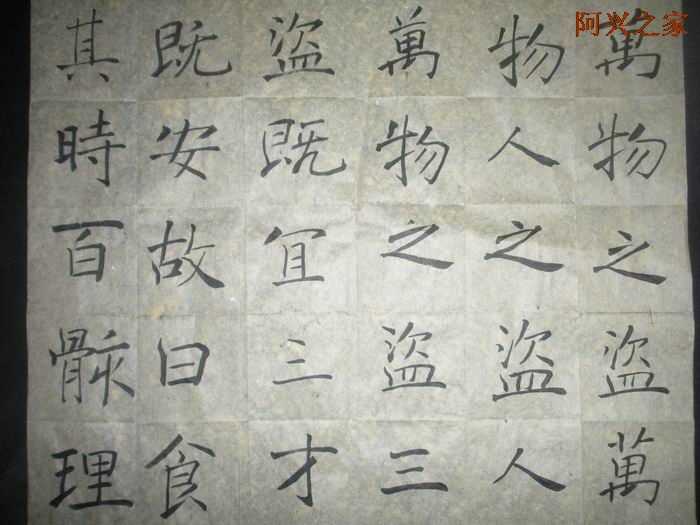 阿兴之家
萬物之盜萬
物人之盜人
萬物之盜三
盜既宜三才
既安故曰食
其時百骸理